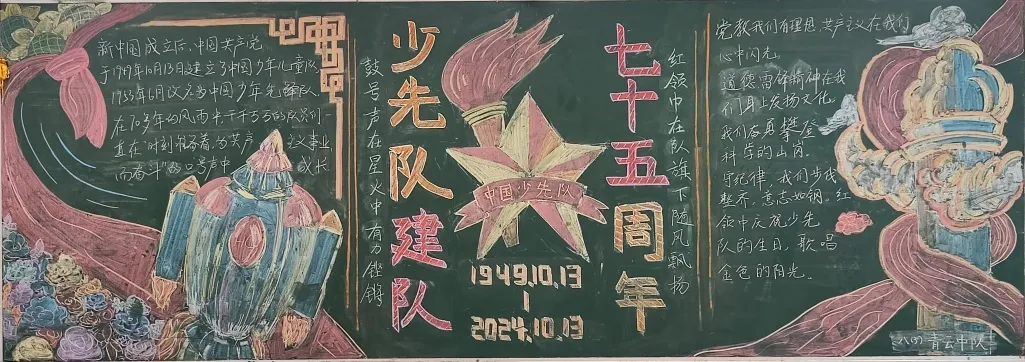 新中国成立后,中国共产党
于1949年10月13日建立了中国少年儿童队
1953年6月改名为中国少年先锋队
在70多年的风雨中千千万万的队员们一
直在"时刻准备着,为共产 主义事业
而奋斗"的口号声中 成长
鼓号声在星火中有力铿锵
少先队建队
中国少先队
1949.10.13
2024.10.13
七十五周年
红领巾在队旗下随风飘扬
党教我们有理想,共产主义在我们
心中闪光,
道德雷锋精神在我
们身上发扬文化,
我们在真攀登
科学的山岗。
守纪律,我们步伐
整齐,意志如钢。红
领巾庆祝少先
队的生日,歌唱
金色的阳光。
青云中队